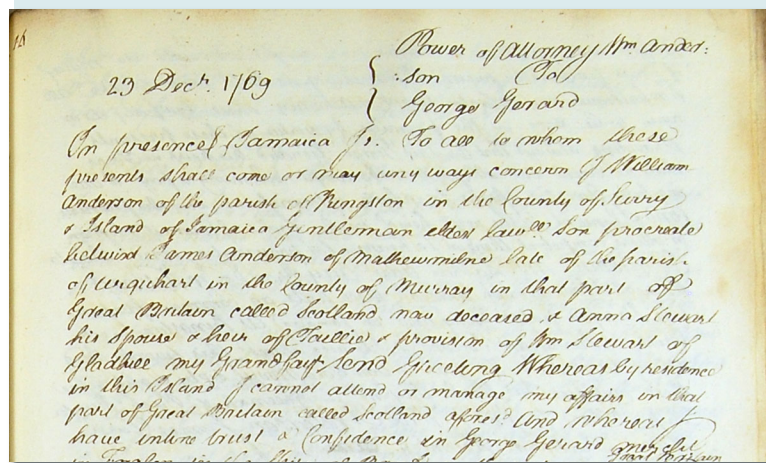 23 Decr. 1769
Power of Attorney Wm Ander:
:son To
George Gerard
In presence Jamaica Js. To all to whom these
presents shall come or may any ways concern I William
Anderson of the parish of Kingston in the County of Surry
& Island of Jamaica Gentleman eldest lawll Son procreate
betwixt James Anderson of Mathewmilne late of the parish
of Urquhart in the County of Murray in that part of
Great Britain called Scotland now deceased & Anna Stewart
his Spouse & heir of Taillie & provision of Wm Stewart of
my Grandfayr Send Greeting Whereas by residence
in this Island I cannot attend or manage my affairs in that
part of Great Britain called Scotland aforesd. And whereas I
have intire trust & Confidence in George Gerard